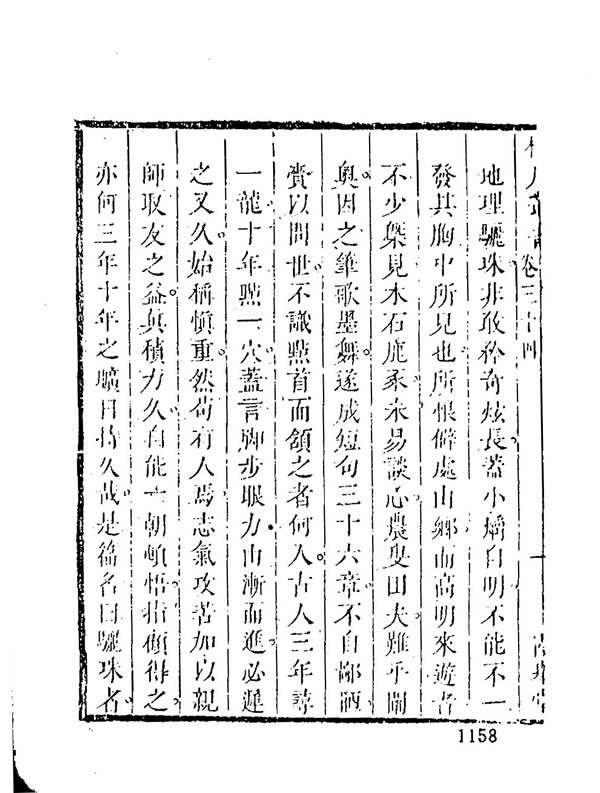 卷三十四
地理驪珠非敢矜奇炫長蓋小熖自明不能不一
發其胸中所見也所恨僻處山鄉而高明來遊者
不少槩見木石鹿豕未易談心農叟田夫難乎闡
奧因之筆歌墨舞遂成短句三十六章不自鄙陋
賫以問世不識點首而頷之者何人古人三年尋
一龍十年點一穴蓋言脚步眼力由漸而進必遲
之又久始稱愼重然苟有人焉志氣攻苦加以親
師取友之益眞積力久自能一朝頓悟指顧得之
亦何三年十年之曠日持久哉是篇名曰驪珠者
1158